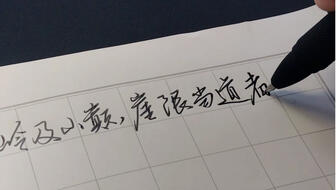 岭及小巅，崖限当道者